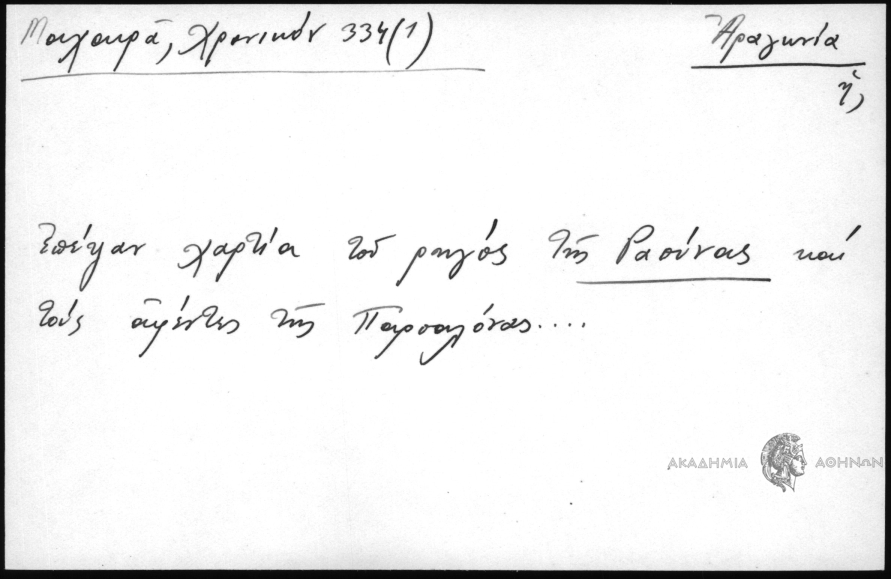 Μαχαιρᾶ, Χρονικόν 334(1)
Ἀραγωνία
ἡ,
ἐπέψαν χαρτία τοῦ ρηγός τῆς Ρασούνας καί
τούς ἀφέντες τῆς Παρσαλόνας....
ΑΚΑΔΗΜΙΑ ΑΘΗΝΩΝ